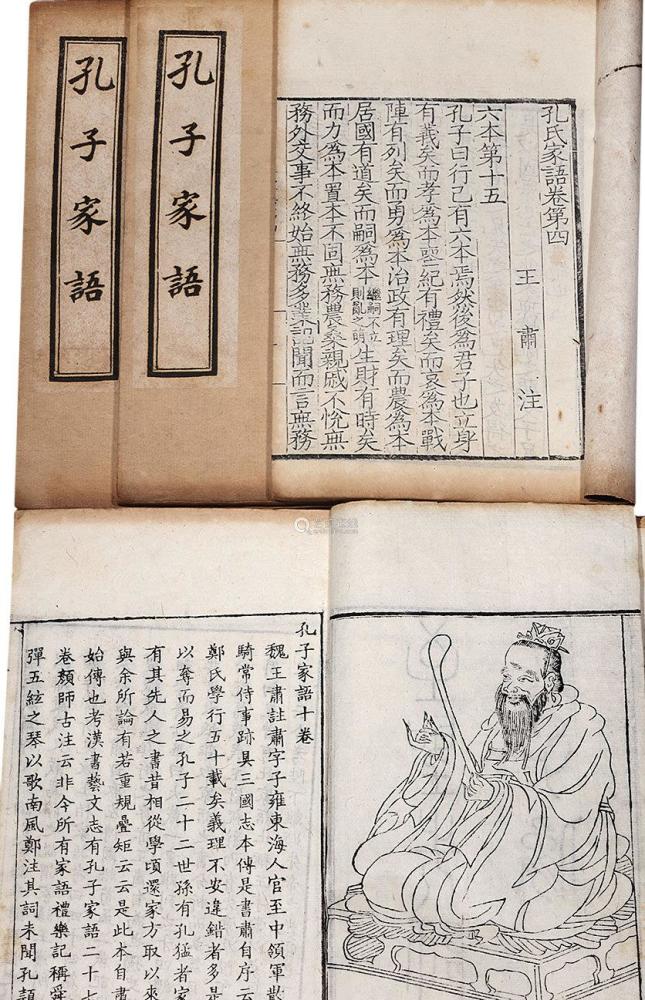 孔子家語
孔子家語
孔氏家語卷第四
王肅注
六本第十五
孔子曰行己有六本焉然後為君子也立身
有義矣而孝為本喪紀有禮矣而哀為本戰
陣有列矣而勇為本治政有理矣而農為本
居國有道矣而嗣為本繼嗣不立則亂之萌生財有時矣
而力為本置本不固無務農桑親戚不悅無
務外交事不終始無務多業記聞而言無務
孔子家語十卷
魏王肅註肅字子雍東海人官至中領軍散
騎常侍事跡具三國志本傳是書肅自序云
鄭氏學行五十載矣義理不安違錯者多是
以奪而易之孔子二十二世孫有孔猛者家
有其先人之書昔相從學頃還家方取以來
與余所論有若重規疊矩云云是此本自肅
始傳也考漢書藝文志有孔子家語二十七
卷顏師古注云非今所有家語禮樂記稱舜
彈五絃之琴以歌南風鄭注其詞未聞孔穎